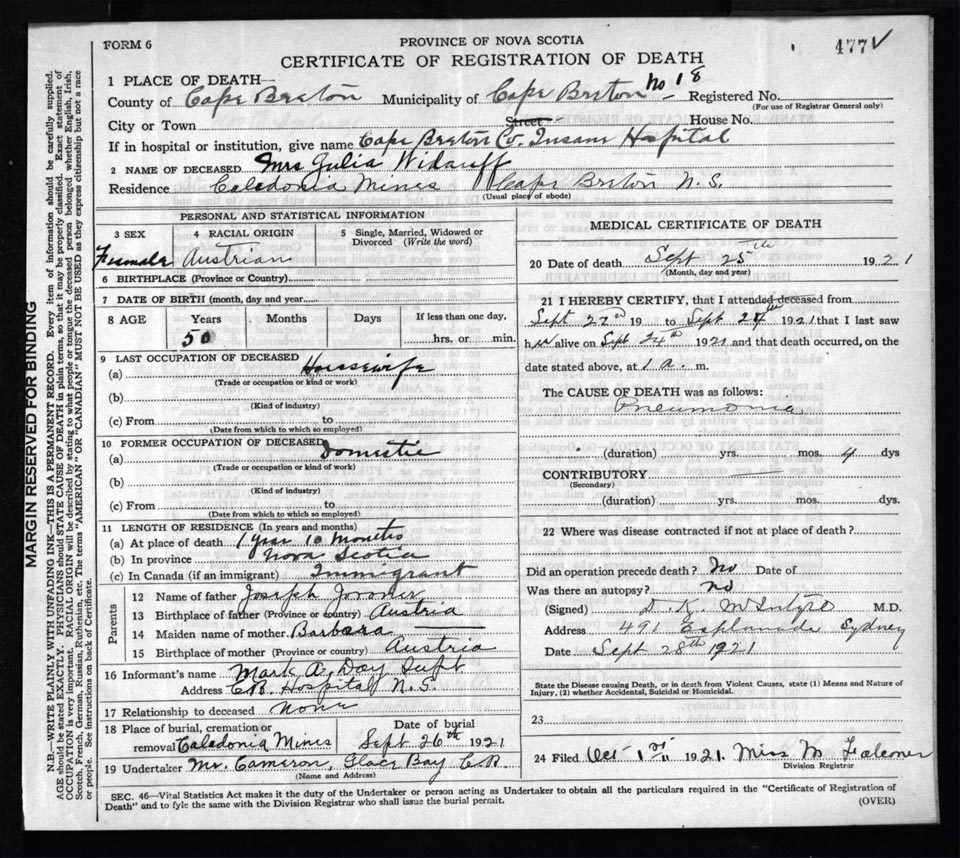 FORM 6
PROVINCE OF NOVA SCOTIA
477 ✓
CERTIFICATE OF REGISTRATION OF DEATH
1 PLACE OF DEATH—
County of Cape Breton Municipality of Cape Breton No 18 Registered No.
(For use of Registrar General only)
City or Town Street House No.
If in hospital or institution, give name Cape Breton Co. Insane Hospital
2 NAME OF DECEASED Mrs Julia
Residence Caledonia Mines Cape Breton N.S.
(Usual place of abode)
PERSONAL AND STATISTICAL INFORMATION
3 SEX 4 RACIAL ORIGIN 5 Single, Married, Widowed or
Divorced (Write the word)
Female Austrian
6 BIRTHPLACE (Province or Country)
7 DATE OF BIRTH (month, day and year
8 AGE Years Months Days If less than one day,
50 hrs. or min.
9 LAST OCCUPATION OF DECEASED
(a) Housewife
(Trade or occupation or kind of work)
(b)
(Kind of industry)
(c) From to
(Date from which to which so employed)
10 FORMER OCCUPATION OF DECEASED
(a) Domestic
(Trade or occupation or kind of work)
(b)
(Kind of industry)
(c) From to
(Date from which to which so employed)
11 LENGTH OF RESIDENCE (In years and months)
(a) At place of death 1 year 10 months
(b) In province Nova Scotia
(c) In Canada (if an immigrant) Immigrant
Parents
12 Name of father Joseph
13 Birthplace of father (Province or country) Austria
14 Maiden name of mother Barbara
15 Birthplace of mother (Province or country) Austria
16 Informant's name Mark A. Day Supt
Address C.B. Hospital N.S.
17 Relationship to deceased none
18 Place of burial, cremation or Date of burial
removal Caledonia Mines Sept 26th 1921
19 Undertaker Mr. Cameron, Glace Bay C.B.
(Name and Address)
MEDICAL CERTIFICATE OF DEATH
20 Date of death Sept 25th 1921
(Month, day and year)
21 I HEREBY CERTIFY, that I attended deceased from
Sept 22nd 19 to Sept 24th 1921 that I last saw
her alive on Sept 24th 1921 and that death occurred, on the
date stated above, at 1 a. m.
The CAUSE OF DEATH was as follows:
Pneumonia
(duration) yrs. mos. 4 dys
CONTRIBUTORY
(Secondary)
(duration) yrs. mos. dys.
22 Where was disease contracted if not at place of death?
Did an operation precede death? No Date of
Was there an autopsy? No
(Signed) D. K. McIntyre M.D.
Address 491 Esplanade Sydney
Date Sept 28th 1921
State the Disease causing Death, or in death from Violent Causes, state (1) Means and Nature of
Injury, (2) whether Accidental, Suicidal or Homicidal.
23
24 Filed Oct 1st 1921. Miss M Falconer
Division Registrar
SEC. 46—Vital Statistics Act makes it the duty of the Undertaker or person acting as Undertaker to obtain all the particulars required in the "Certificate of Registration of
Death" and to fyle the same with the Division Registrar who shall issue the burial permit.
(OVER)
MARGIN RESERVED FOR BINDING
N.B.—WRITE PLAINLY WITH UNFADING INK—THIS IS A PERMANENT RECORD. Every item of information should be carefully supplied.
AGE should be stated EXACTLY. PHYSICIANS should STATE CAUSE OF DEATH in plain terms, so that it may be properly classified. Exact statement of
OCCUPATION is very important. RACIAL ORIGIN will be described by stating to what people or tongue the deceased person belonged whether English, Irish,
Scotch, French, German, Russian, Ruthenian, etc. The terms "AMERICAN" OR "CANADIAN" MUST NOT BE USED as they express citizenship but not a race
or people. See instructions on back of Certificate.